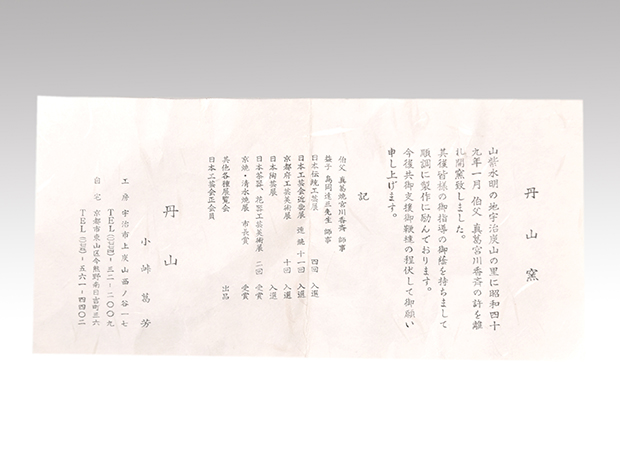 丹山窯
山紫水明の地宇治炭山の里に昭和四十
九年一月 伯父 真葛宮川香斉の許を離
れ開窯致しました。
其後皆様の御指導の御蔭を持ちまして
順調に製作に励んでおります。
今後共御支援御鞭撻の程伏して御願い
申し上げます。
記
伯父 真葛焼宮川香斉 師事
益子 島岡達三先生 師事
日本伝統工芸展 四回 入選
日本工芸会近畿展 連続 十一回 入選
京都府工芸美術展 十回 入選
日本陶芸展 入選
日本茶器、花器工芸美術展 二回 受賞
京焼・清水焼展 市長賞 受賞
其他各種展覧会 出品
日本工芸会正会員
丹山
小峠葛芳
工房 宇治市上炭山西ノ谷一七
TEL 三二-二〇〇九
自宅 京都市東山区今熊野南日吉町三六
TEL 五六一-四四〇二